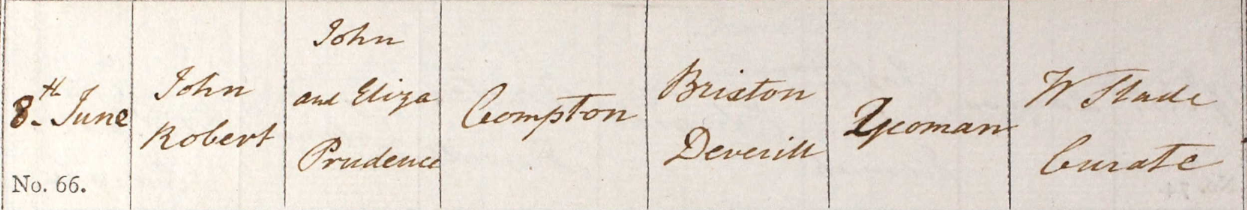 8th June
No. 66.
John
Robert
John
and Eliza
Prudence
Compton
Brixton
Deverill
Yeoman
W Slade
Curate